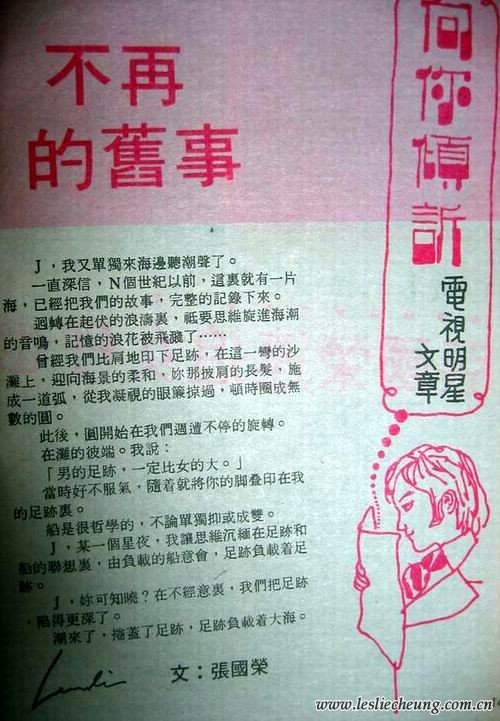 不再
的舊事
向你傾訴
電視明星
文章
J，我又單獨來海邊聽潮聲了。
一直深信，N個世紀以前，這裏就有一片
海，已經把我們的故事，完整的記錄下來。
迴轉在起伏的浪濤裏，祇要思維旋進海潮
的音鳴，記憶的浪花被飛濺了……
曾經我們比肩地印下足跡，在這一彎的沙
灘上，迎向海景的柔和，妳那披肩的長髮，施
成一道弧，從我凝視的眼簾掠過，頓時圈成無
數的圓。
此後，圓開始在我們週遭不停的旋轉。
在灘的彼端。我說：
「男的足跡，一定比女的大。」
當時好不服氣，隨着就將你的脚叠印在我
的足跡裏。
船是很哲學的，不論單獨抑或成雙。
J，某一個星夜，我讓思維沉緬在足跡和
船的聯想裏，由負載的船意會，足跡負載着足
跡。
J，妳可知曉？在不經意裏，我們把足跡
，陷得更深了。
潮來了，捲蓋了足跡，足跡負載着大海。
Leslie
文：張國榮
www.lesliecheung.com.cn